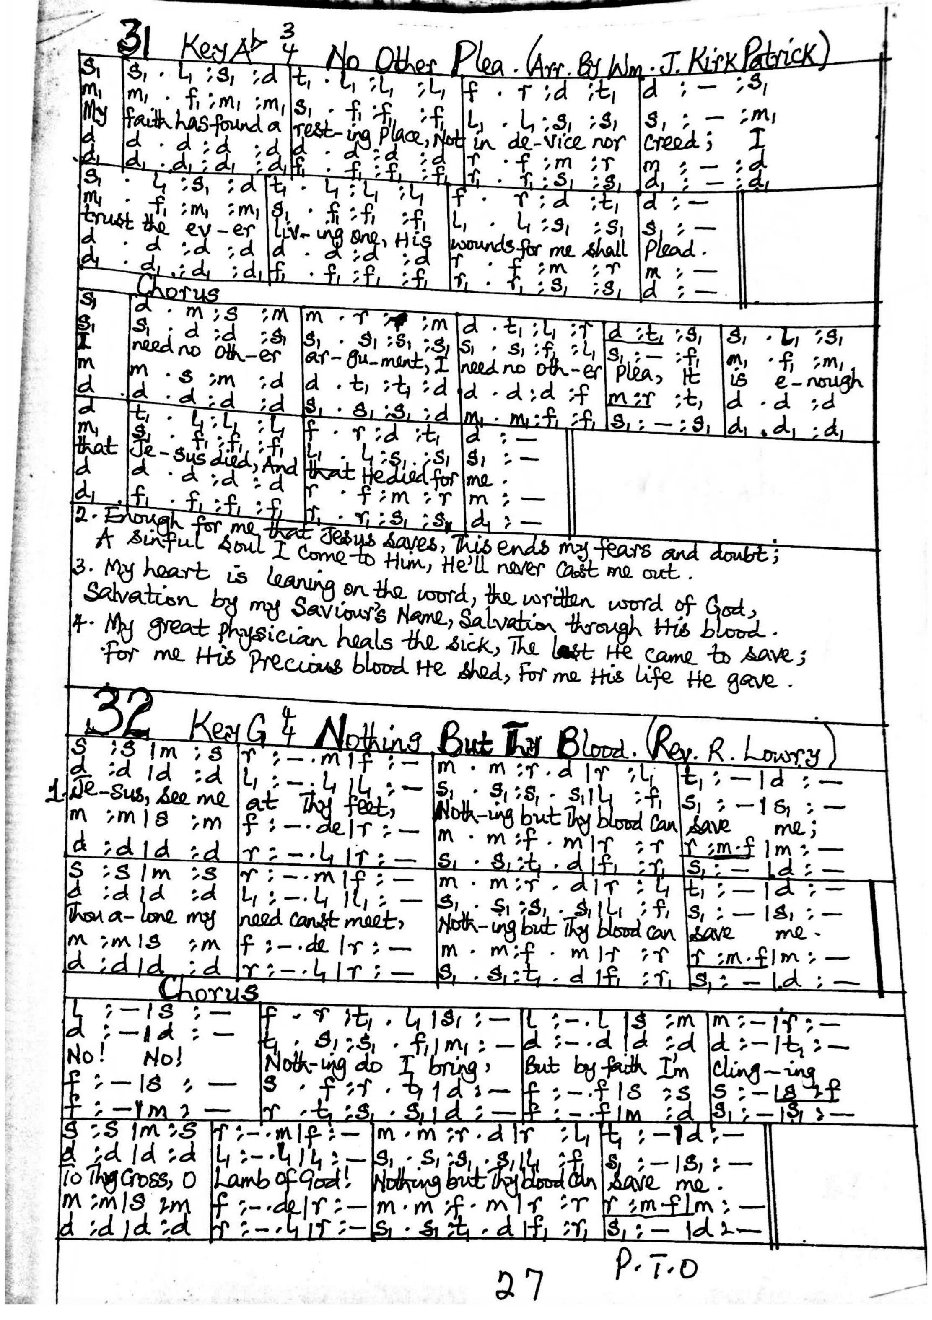 31 Key A♭ 3/4 No Other Plea. (Arr. By Wm. J. KirkPatrick)
s₁ | s₁ . l₁ : s₁ : d | t₁ . l₁ : l₁ : l₁ | f . r : d : t₁ | d : — : s₁
m₁ | m₁ . f₁ : m₁ : m₁ | s₁ . f₁ : f₁ : f₁ | l₁ . l₁ : s₁ : s₁ | s₁ : — : m₁
My faith has found a rest-ing Place, Not in de-vice nor creed; I
d | d . d : d : d | d . d : d : d | r . f : m : r | m : — : d
d₁ | d₁ . d₁ : d₁ : d₁ | f₁ . f₁ : f₁ : f₁ | r₁ . r₁ : s₁ : s₁ | d₁ : — : d₁
s₁ . l₁ : s₁ : d | t₁ . l₁ : l₁ : l₁ | f . r : d : t₁ | d : —
m₁ . f₁ : m₁ : m₁ | s₁ . f₁ : f₁ : f₁ | l₁ . l₁ : s₁ : s₁ | s₁ : —
trust the ev-er Liv-ing one, His wounds for me shall Plead.
d . d : d : d | d . d : d : d | r . f : m : r | m : —
d₁ . d₁ : d₁ : d₁ | f₁ . f₁ : f₁ : f₁ | r₁ . r₁ : s₁ : s₁ | d : —
Chorus
s₁ | d . m : s : m | m . r : r : m | d . t₁ : l₁ : r | d : t₁ : s₁ | s₁ . l₁ : s₁
s₁ | s₁ . d : d : s₁ | s₁ . s₁ : s₁ : s₁ | s₁ . s₁ : f₁ : l₁ | s₁ : — : f₁ | m₁ . f₁ : m₁
I need no oth-er ar-gu-ment, I need no oth-er Plea, It is e-nough
m | m . s : m : d | d . t₁ : t₁ : d | d . d : d : f | m : r : t₁ | d . d : d
d | d . d : d : d | s₁ . s₁ : s₁ : d | m₁ . m₁ : f₁ : f₁ | s₁ : — : s₁ | d₁ . d₁ : d₁
d | t₁ . l₁ : l₁ : l₁ | f . r : d : t₁ | d : —
m₁ | s₁ . f₁ : f₁ : f₁ | l₁ . l₁ : s₁ : s₁ | s₁ : —
that Je-sus died, And that He died for me.
d | d . d : d : d | r . f : m : r | m : —
d₁ . f₁ . f₁ : f₁ : f₁ | r₁ . r₁ : s₁ : s₁ | d₁ : —
2. Enough for me that Jesus saves, This ends my fears and doubt;
A sinful soul I come to Him, He'll never Cast me out.
3. My heart is leaning on the word, the written word of God,
Salvation by my Saviour's Name, Salvation through His blood.
4. My great Physician heals the sick, The lost He came to save;
For me His Precious blood He shed, For me His life He gave.
32 Key G 4/4 Nothing But Thy Blood. (Rev. R. Lowry)
s : s | m : s | r : — . m | f : — | m . m : r . d | r : l₁ | t₁ : — | d : —
d : d | d : d | l₁ : — . l₁ | l₁ : — | s₁ . s₁ : s₁ . s₁ | l₁ : f₁ | s₁ : — | s₁ : —
1. Je-sus, see me at Thy feet, Noth-ing but Thy blood can save me;
m : m | s : m | f : — . de | r : — | m . m : f . m | r : r | r : m . f | m : —
d : d | d : d | r : — . l₁ | r : — | s₁ . s₁ : t₁ . d | f₁ : r₁ | s₁ : — | d : —
s : s | m : s | r : — . m | f : — | m . m : r . d | r : l₁ | t₁ : — | d : —
d : d | d : d | l₁ : — . l₁ | l₁ : — | s₁ . s₁ : s₁ . s₁ | l₁ : f₁ | s₁ : — | s₁ : —
Thou a-lone my need canst meet, Noth-ing but Thy blood can save me.
m : m | s : m | f : — . de | r : — | m . m : f . m | r : r | r : m . f | m : —
d : d | d : d | r : — . l₁ | r : — | s₁ . s₁ : t₁ . d | f₁ : r₁ | s₁ : — | d : —
Chorus
l : — | s : — | f . r : t₁ . l₁ | s₁ : — | l : — . l | s : m | m : — | r : —
d : — | d : — | t₁ . s₁ : s₁ . f₁ | m₁ : — | d : — . d | d : d | d : — | t₁ : —
No! No! Noth-ing do I bring, But by faith I'm cling-ing
f : — | s : — | s . f : r . t₁ | d : — | f : — . f | s : s | s : — | s : f
f : — | m : — | r . t₁ : s₁ . s₁ | d : — | f : — . f | m : d | s₁ : — | s₁ : —
s : s | m : s | r : — . m | f : — | m . m : r . d | r : l₁ | t₁ : — | d : —
d : d | d : d | l₁ : — . l₁ | l₁ : — | s₁ . s₁ : s₁ . s₁ | l₁ : f | s₁ : — | s₁ : —
To Thy Cross, O Lamb of God! Nothing but Thy blood Can save me.
m : m | s : m | f : — . de | r : — | m . m : f . m | r : r | r : m . f | m : —
d : d | d : d | r : — . l₁ | r : — | s₁ . s₁ : t₁ . d | f₁ : r₁ | s₁ : — | d : —
P.T.O
27